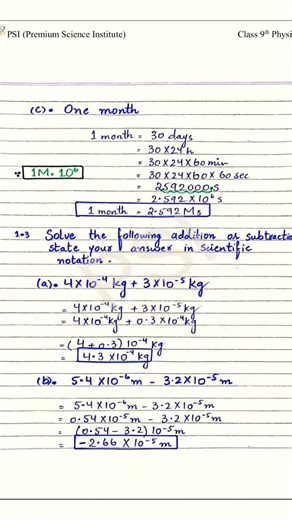 PSI (Premium Science Institute) Class 9th Physi
(c). One month
1 month = 30 days
= 30 X 24 h
= 30 X 24 X 60 min
∵ 1M = 10⁶ = 30 X 24 X 60 X 60 sec
= 2592000.s
= 2.592 X 10⁶ s
1 month = 2.592 Ms
1.3 Solve the following addition or subtractio
state your answer in scientific
notation.
(a). 4X10⁻⁴ kg + 3X10⁻⁵ kg
= 4X10⁻⁴ kg + 3X10⁻⁵ kg
= 4X10⁻⁴ kg + 0.3X10⁻⁴ kg
= (4+0.3) 10⁻⁴ kg
= 4.3 X10⁻⁴ kg
(b). 5.4 X10⁻⁶ m - 3.2X10⁻⁵ m
= 5.4 X10⁻⁶ m - 3.2X10⁻⁵ m
= 0.54X10⁻⁵ m - 3.2X10⁻⁵ m
= (0.54 - 3.2) 10⁻⁵ m
= -2.66 X 10⁻⁵ m